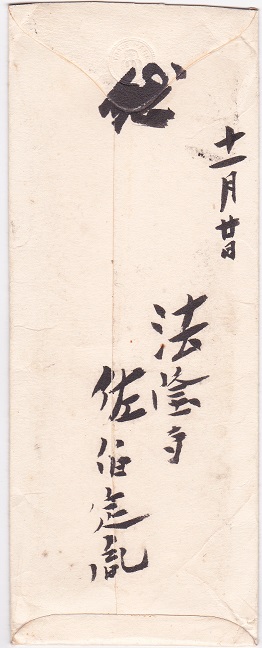 十一月廿日
法隆寺
佐伯定胤